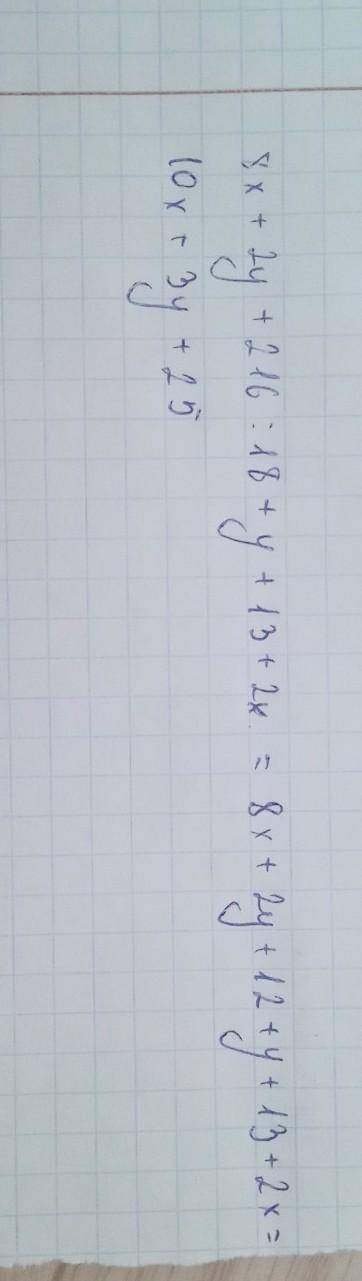 8x + 2y + 216 : 18 + y + 13 + 2x = 8x + 2y + 12 + y + 13 + 2x =
10x + 3y + 25